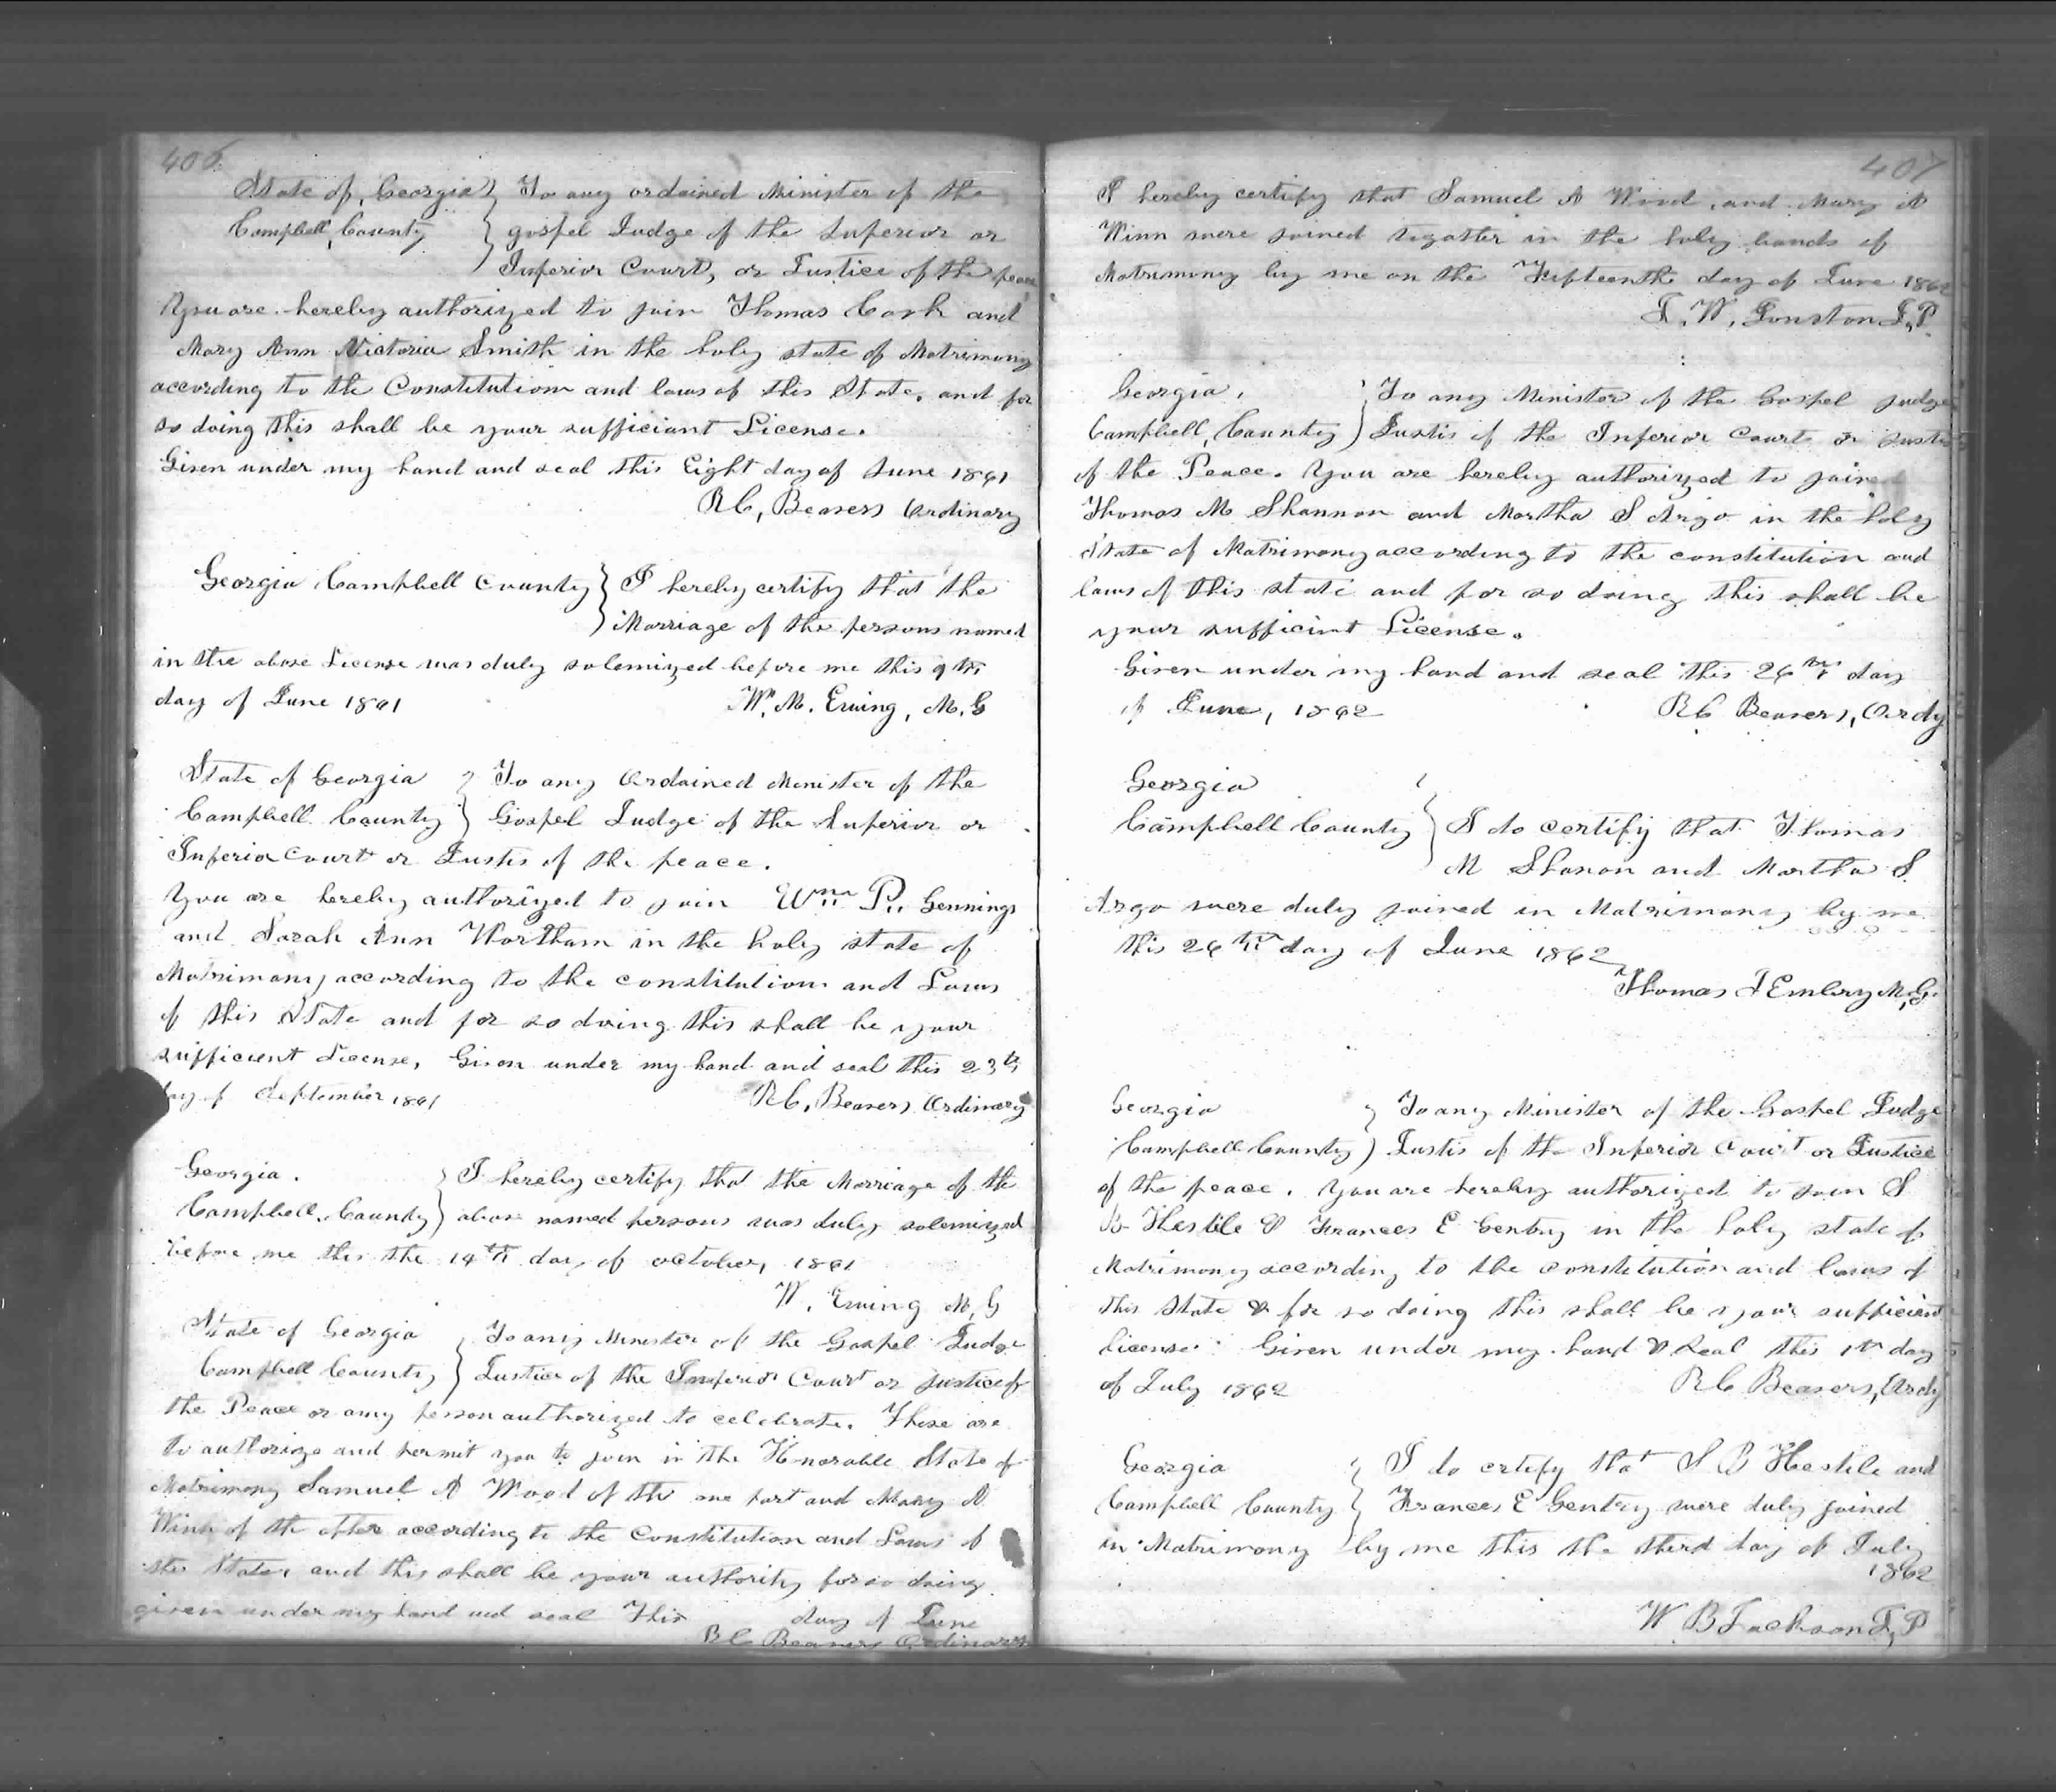 406
State of Georgia } To any ordained Minister of the
Campbell County } gospel Judge of the Superior or
Inferior Court, or Justice of the peace
You are hereby authorized to join Thomas Cook and
Mary Ann Victoria Smith in the holy state of Matrimony
according to the Constitution and laws of this State, and for
so doing this shall be your sufficiant License.
Given under my hand and seal this Eight day of June 1861
R C, Beavers Ordinary
Georgia Campbell County } I hereby certify that the
Marriage of the persons named
in the above License was duly solemized before me this 9th
day of June 1861 Wm. M. Ewing, M. G
State of Georgia } To any Ordained Menister of the
Campbell County } Gospel Judge of the Superior or
Inferior Court or Justis of the peace.
You are hereby authorized to join Wm P. Gennings
and Sarah Ann Wortham in the holy state of
Matrimony according to the constitution and Laws
of this State and for so doing this shall be your
sufficient License, Given under my hand and seal this 23th
day of September 1861 R C, Beavers Ordinary
Georgia. } I hereby certify that the Marriage of the
Campbell County } above named persons was duly solemized
before me this the 14th day of october, 1861
W. Ewing M, G
State of Georgia } To any Minister of the Gospel Judge
Campbell County } Justice of the Inferior Court or Justice of
the Peace or any person authorized to celebrate. These are
to authorize and permit you to join in the Honorable State of
Matrimony Samuel A Wood of the one part and Mary A
Winn of the other according to the Constitution and Laws of
State, and this shall be your authority for so doing
given under my hand and seal This day of June
R C Beavers Ordinary
407
I hereby certify that Samuel A Wood, and Mary A
Winn were joined togather in the holy bands of
Matrimony by me on the Fifteenth day of June 1862
J. W. Jonston J, P.
Georgia, } To any Minister of the Gospel Judge
Campbell, County } Justis of the Inferior Court or Justis
of the Peace. You are hereby authorized to joine
Thomas M Shannon and Martha S Argo in the holy
State of Matrimony according to the constitution and
laws of this state and for so doing this shall be
your sufficient License.
Given under my hand and seal this 26th day
of June, 1862 R C Beavers, Ordy
Georgia
Campbell County } I do certify that Thomas
M Shanon and Martha S.
Argo were duly joined in Matrimony by me
this 26th day of June 1862
Thomas J Embry M, G.
Georgia } To any Minister of the Gospel Judge
Campbell County ) Justis of the Inferior Court or Justice
of the peace. You are hereby authorized to join S
B Hestile & Frances E Gentry in the holy state of
Matrimony according to the constitution and laws of
this State & for so doing this shall be your sufficient
license. Given under my hand & seal this 1th day
of July 1862 R C Beavers, Ordy
Georgia } I do certify that S B Hestile and
Campbell County } Frances E Gentry were duly joined
in Matrimony by me this the third day of July
1862
W B Jackson J, P